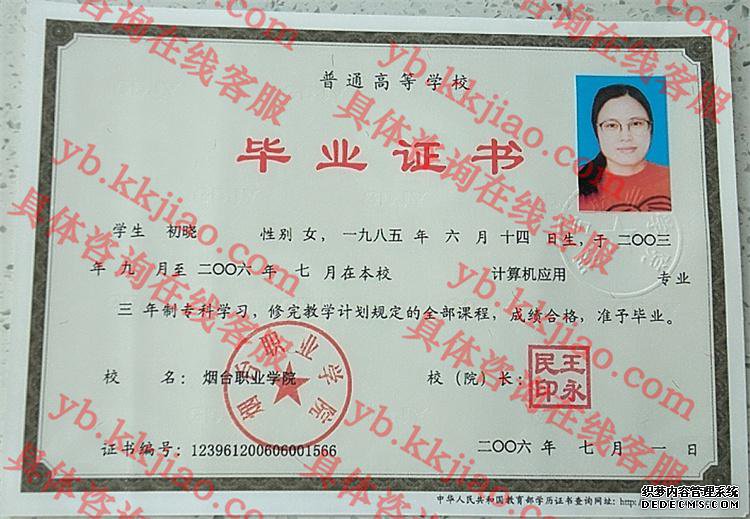 普通高等学校
毕业证书
学生 初晓 性别 女，一九八五 年 六 月 十四 日生，于 二〇〇三
年 九 月至 二〇〇六 年 七 月在本校 计算机应用 专业
三 年制专科学习，修完教学计划规定的全部课程，成绩合格，准予毕业。
校 名：烟台职业学院 校（院）长：
烟台职业学院
王永民印
证书编号：123961200606001566 二〇〇六 年 七 月 一 日
中华人民共和国教育部学历证书查询网址：http:
yb.kkjiao.com
具体咨询在线客服
yb.kkjiao.com
具体咨询在线客服
yb.kkjiao.com
具体咨询在线客服
yb.kkjiao.com
具体咨询在线客服
织梦内容管理系统
DEDECMS.COM